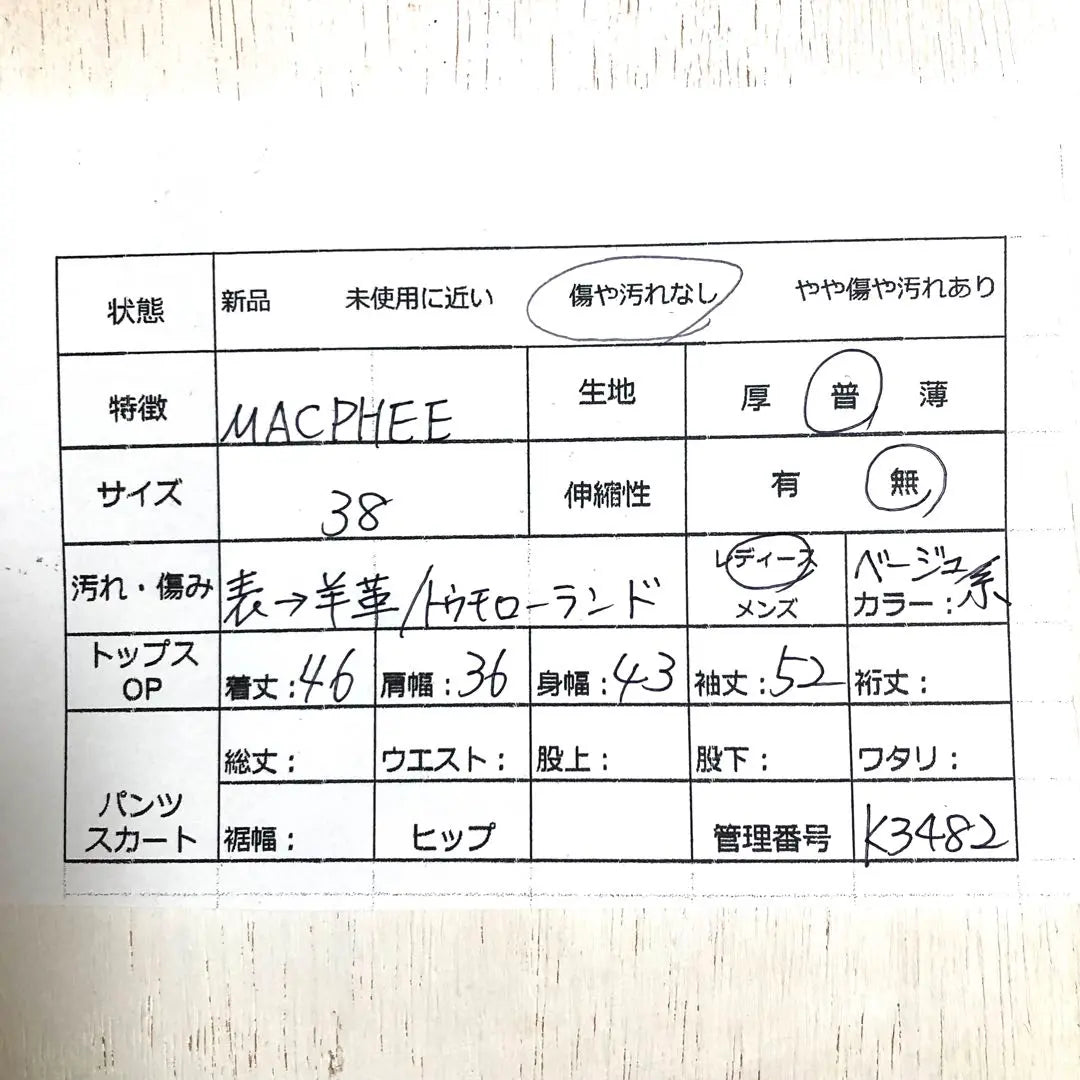 状態 新品 未使用に近い 傷や汚れなし やや傷や汚れあり
特徴 MACPHEE 生地 厚 普 薄
サイズ 38 伸縮性 有 無
汚れ・傷み 表→羊革/トゥモローランド レディース メンズ ベージュ系 カラー:
トップス OP 着丈:46 肩幅:36 身幅:43 袖丈:52 裄丈:
パンツ スカート 総丈: ウエスト: 股上: 股下: ワタリ:
裾幅: ヒップ 管理番号 K3482